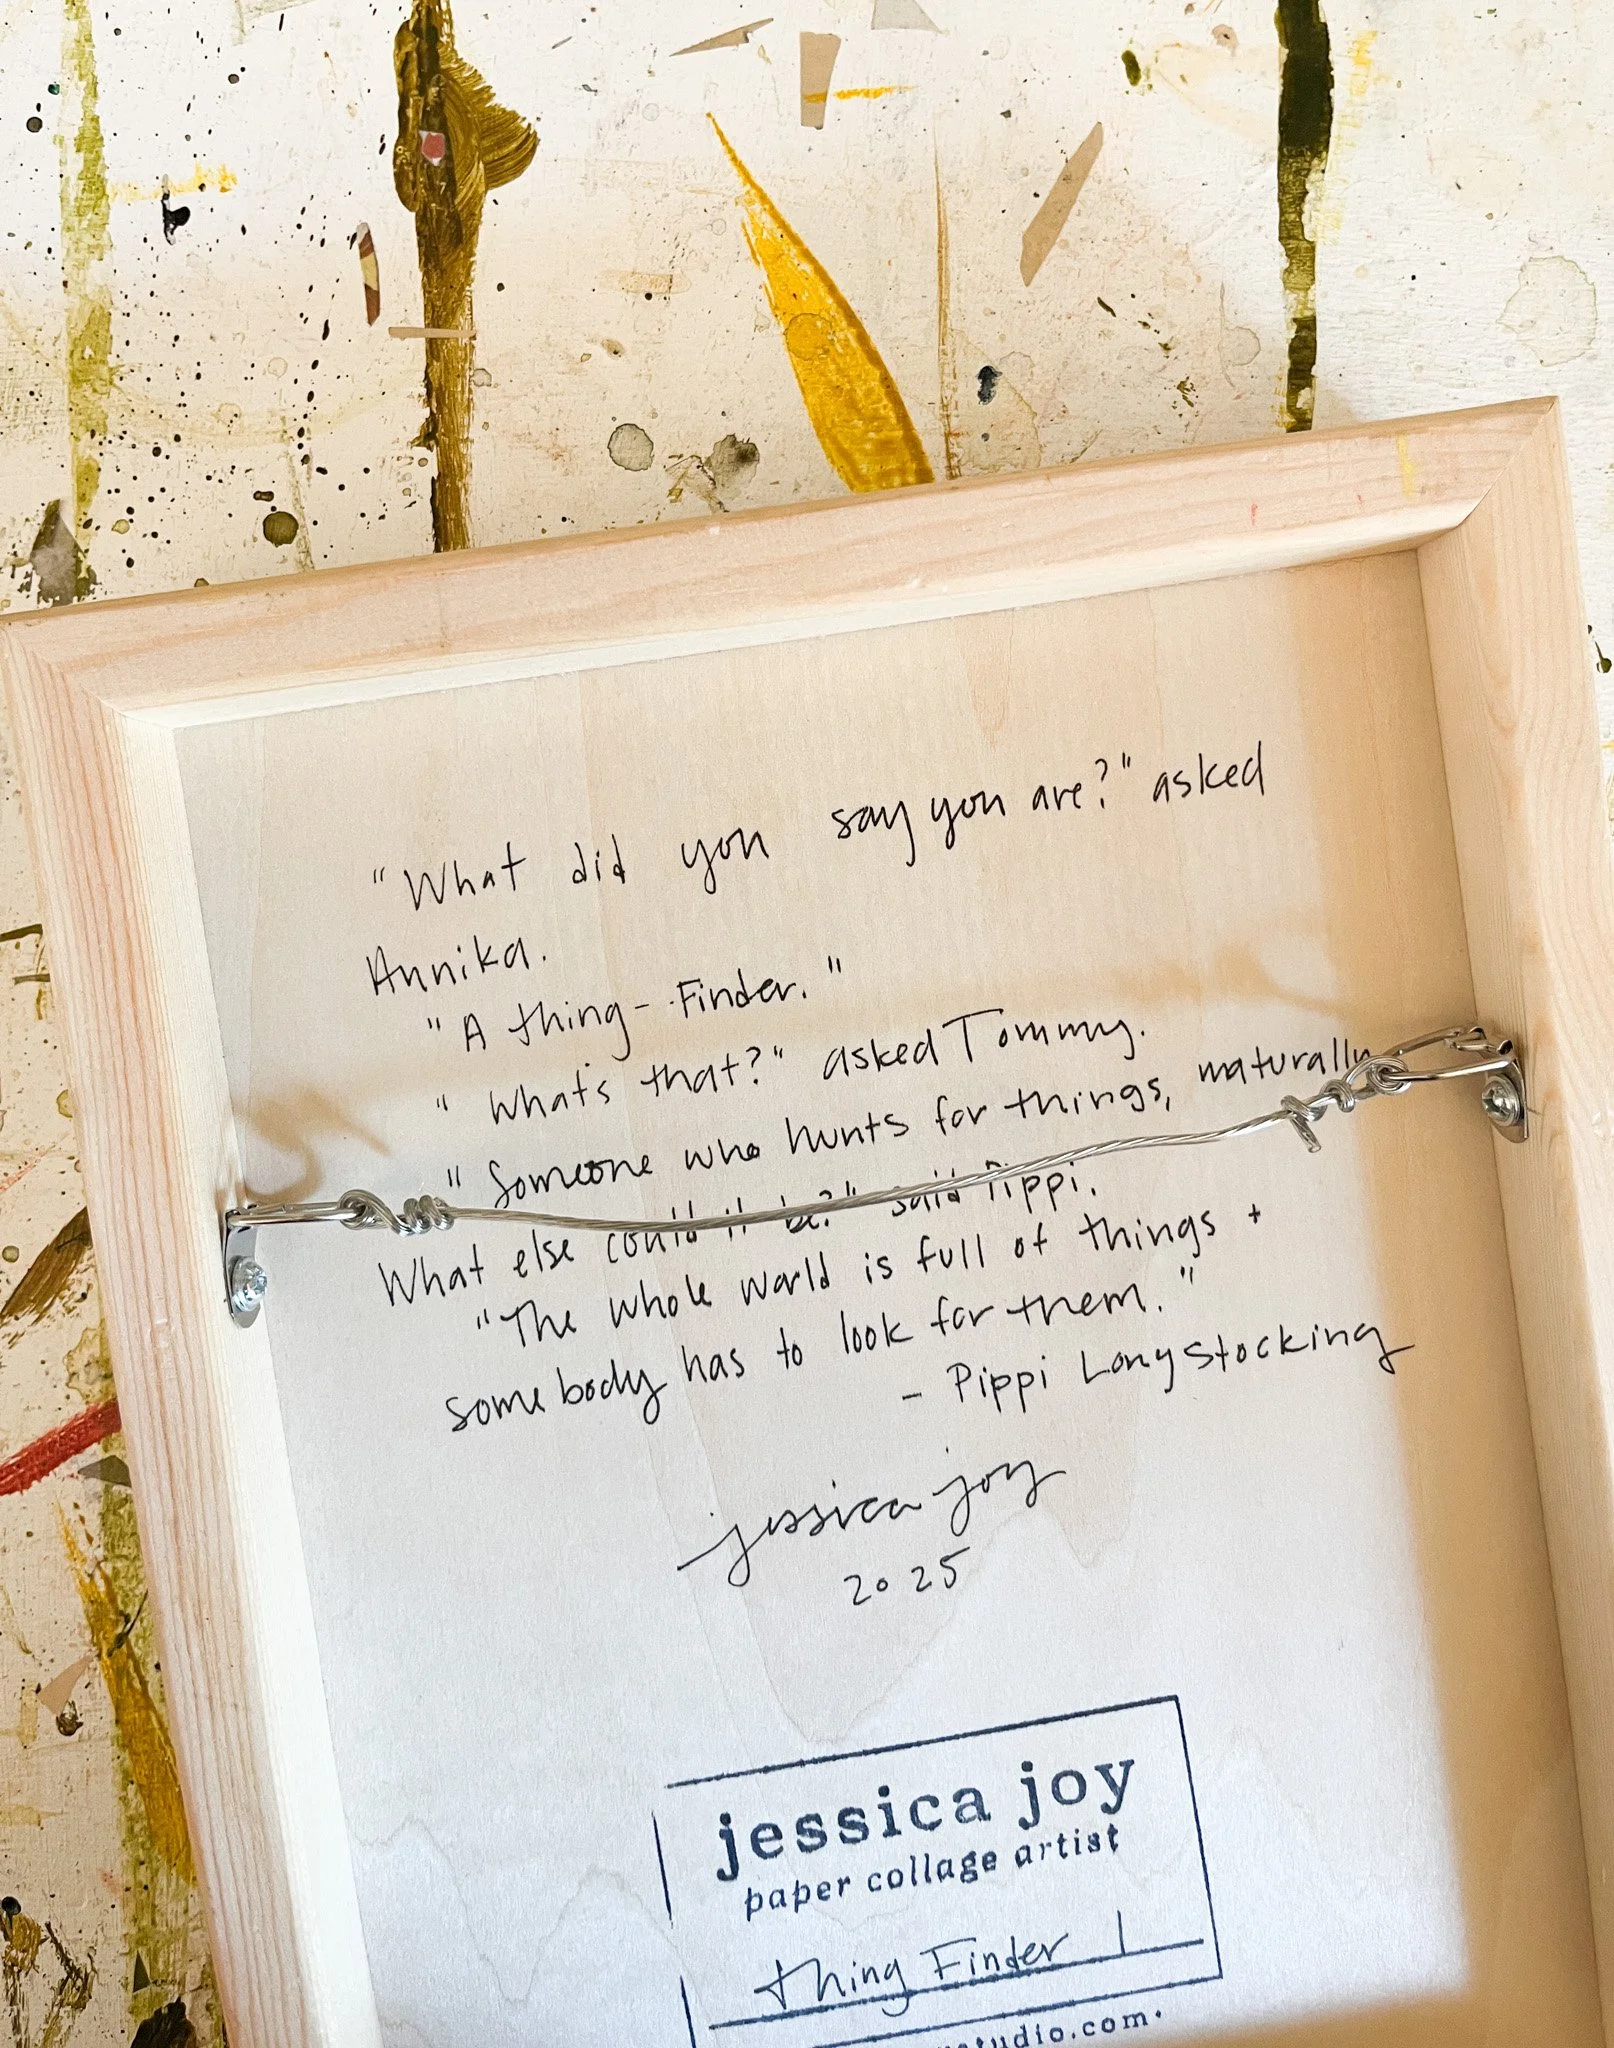 "What did you say you are?" asked
Annika.
"A thing-Finder."
"What's that?" asked Tommy.
"Someone who hunts for things, naturally
What else could it be?" said Pippi.
"The whole world is full of things +
somebody has to look for them."
- Pippi Longstocking
jessica joy
2025
jessica joy
paper collage artist
thing Finder 1